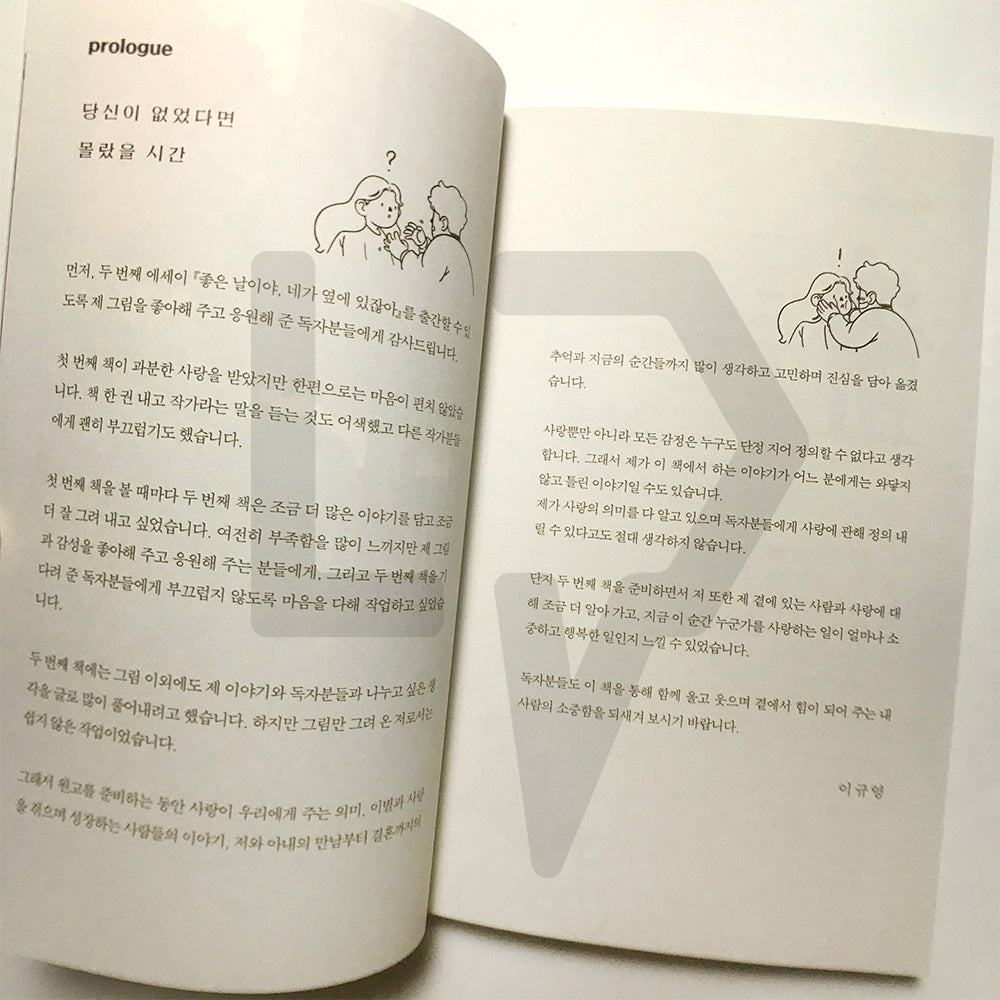 prologue
당신이 없었다면
몰랐을 시간
?
먼저, 두 번째 에세이 『좋은 날이야, 네가 옆에 있잖아』를 출간할 수 있
도록 제 그림을 좋아해 주고 응원해 준 독자분들에게 감사드립니다.
첫 번째 책이 과분한 사랑을 받았지만 한편으로는 마음이 편치 않았습
니다. 책 한 권 내고 작가라는 말을 듣는 것도 어색했고 다른 작가분들
에게 괜히 부끄럽기도 했습니다.
첫 번째 책을 볼 때마다 두 번째 책은 조금 더 많은 이야기를 담고 조금
더 잘 그려 내고 싶었습니다. 여전히 부족함을 많이 느끼지만 제 그림
과 감성을 좋아해 주고 응원해 주는 분들에게, 그리고 두 번째 책을 기
다려 준 독자분들에게 부끄럽지 않도록 마음을 다해 작업하고 싶었습
니다.
두 번째 책에는 그림 이외에도 제 이야기와 독자분들과 나누고 싶은 생
각을 글로 많이 풀어내려고 했습니다. 하지만 그림만 그려 온 저로서는
쉽지 않은 작업이었습니다.
그래서 원고를 준비하는 동안 사랑이 우리에게 주는 의미, 이별과 사랑
을 겪으며 성장하는 사람들의 이야기, 저와 아내의 만남부터 결혼까지의
!
추억과 지금의 순간들까지 많이 생각하고 고민하며 진심을 담아 옮겼
습니다.
사랑뿐만 아니라 모든 감정은 누구도 단정 지어 정의할 수 없다고 생각
합니다. 그래서 제가 이 책에서 하는 이야기가 어느 분에게는 와닿지
않고 틀린 이야기일 수도 있습니다.
제가 사랑의 의미를 다 알고 있으며 독자분들에게 사랑에 관해 정의 내
릴 수 있다고도 절대 생각하지 않습니다.
단지 두 번째 책을 준비하면서 저 또한 제 곁에 있는 사람과 사랑에 대
해 조금 더 알아 가고, 지금 이 순간 누군가를 사랑하는 일이 얼마나 소
중하고 행복한 일인지 느낄 수 있었습니다.
독자분들도 이 책을 통해 함께 울고 웃으며 곁에서 힘이 되어 주는 내
사람의 소중함을 되새겨 보시기 바랍니다.
이규영